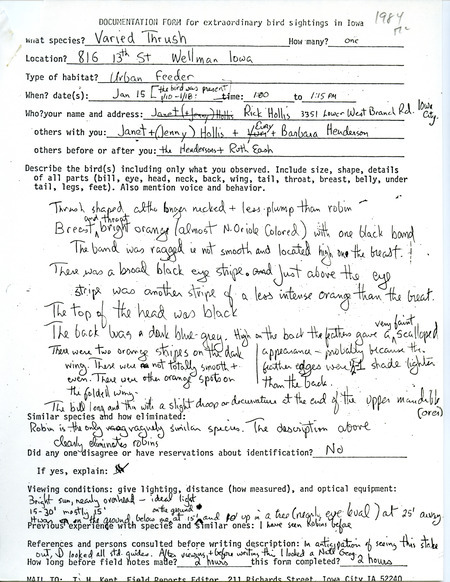 1984
DOCUMENTATION FORM for extraordinary bird sightings in Iowa
What species? Varied Thrush How many? one
Location? 816 13th St Wellman Iowa
Type of habitat? Urban Feeder
When? date(s): Jan 15 [the bird was present 1/10-1/18] time: 1:00 to 1:15 PM
Who? your name and address: Janet (+Jenny) Hollis Rick Hollis 3351 Lower West Branch Rd. Iowa City
others with you: Janet + (Jenny) Hollis + Barbara Henderson
others before or after you: the Hendersons + Ruth
Describe the bird(s) including only what you observed. Include size, shape, details
of all parts (bill, eye, head, neck, back, wing, tail, throat, breast, belly, under
tail, legs, feet). Also mention voice and behavior.
Thrush shaped altho longer necked + less plump than robin
Breast and throat bright orange (almost N. Oriole Colored) with one black band
The band was ragged ie not smooth and located high on the breast.
There was a broad black eye stripe. and just above the eye
stripe was another stripe of a less intense orange than the breat.
The top of the head was black
The back was a dark blue-grey. High on the back the feathers gave a very faint scalloped
appearance - probably because the
feather edges were 1 shade lighter
than the back.
There were two orange stripes on the dark
wing. There were not totally smooth +
even. There were other orange spots on
the folded wing.
The bill long and thin with a slight droop or decurvature at the end of the upper mandible
(over)
Similar species and how eliminated:
Robin is the only vaguely similar species. The description above
clearly eliminates robins
Did any one disagree or have reservations about identification? No
If yes, explain:
Viewing conditions: give lighting, distance (how measured), and optical equipment:
Bright sun, nearly overhead - ideal light
15-30' mostly 15' on the ground
on the ground, below me at 15' and up in a tree (nearly eye level) at 25' away
Previous experience with species and similar ones: I have seen Robins before
References and persons consulted before writing description: In anticipation of seeing this
out, I looked all std. guides. After viewing, + before writing this I looked a Natl Geog.
How long before field notes made? 2 hours this form completed? 2 hours
MAIL TO: T. H. Kent, Field Reports Editor, 211 Richards Street, Iowa City IA 52240